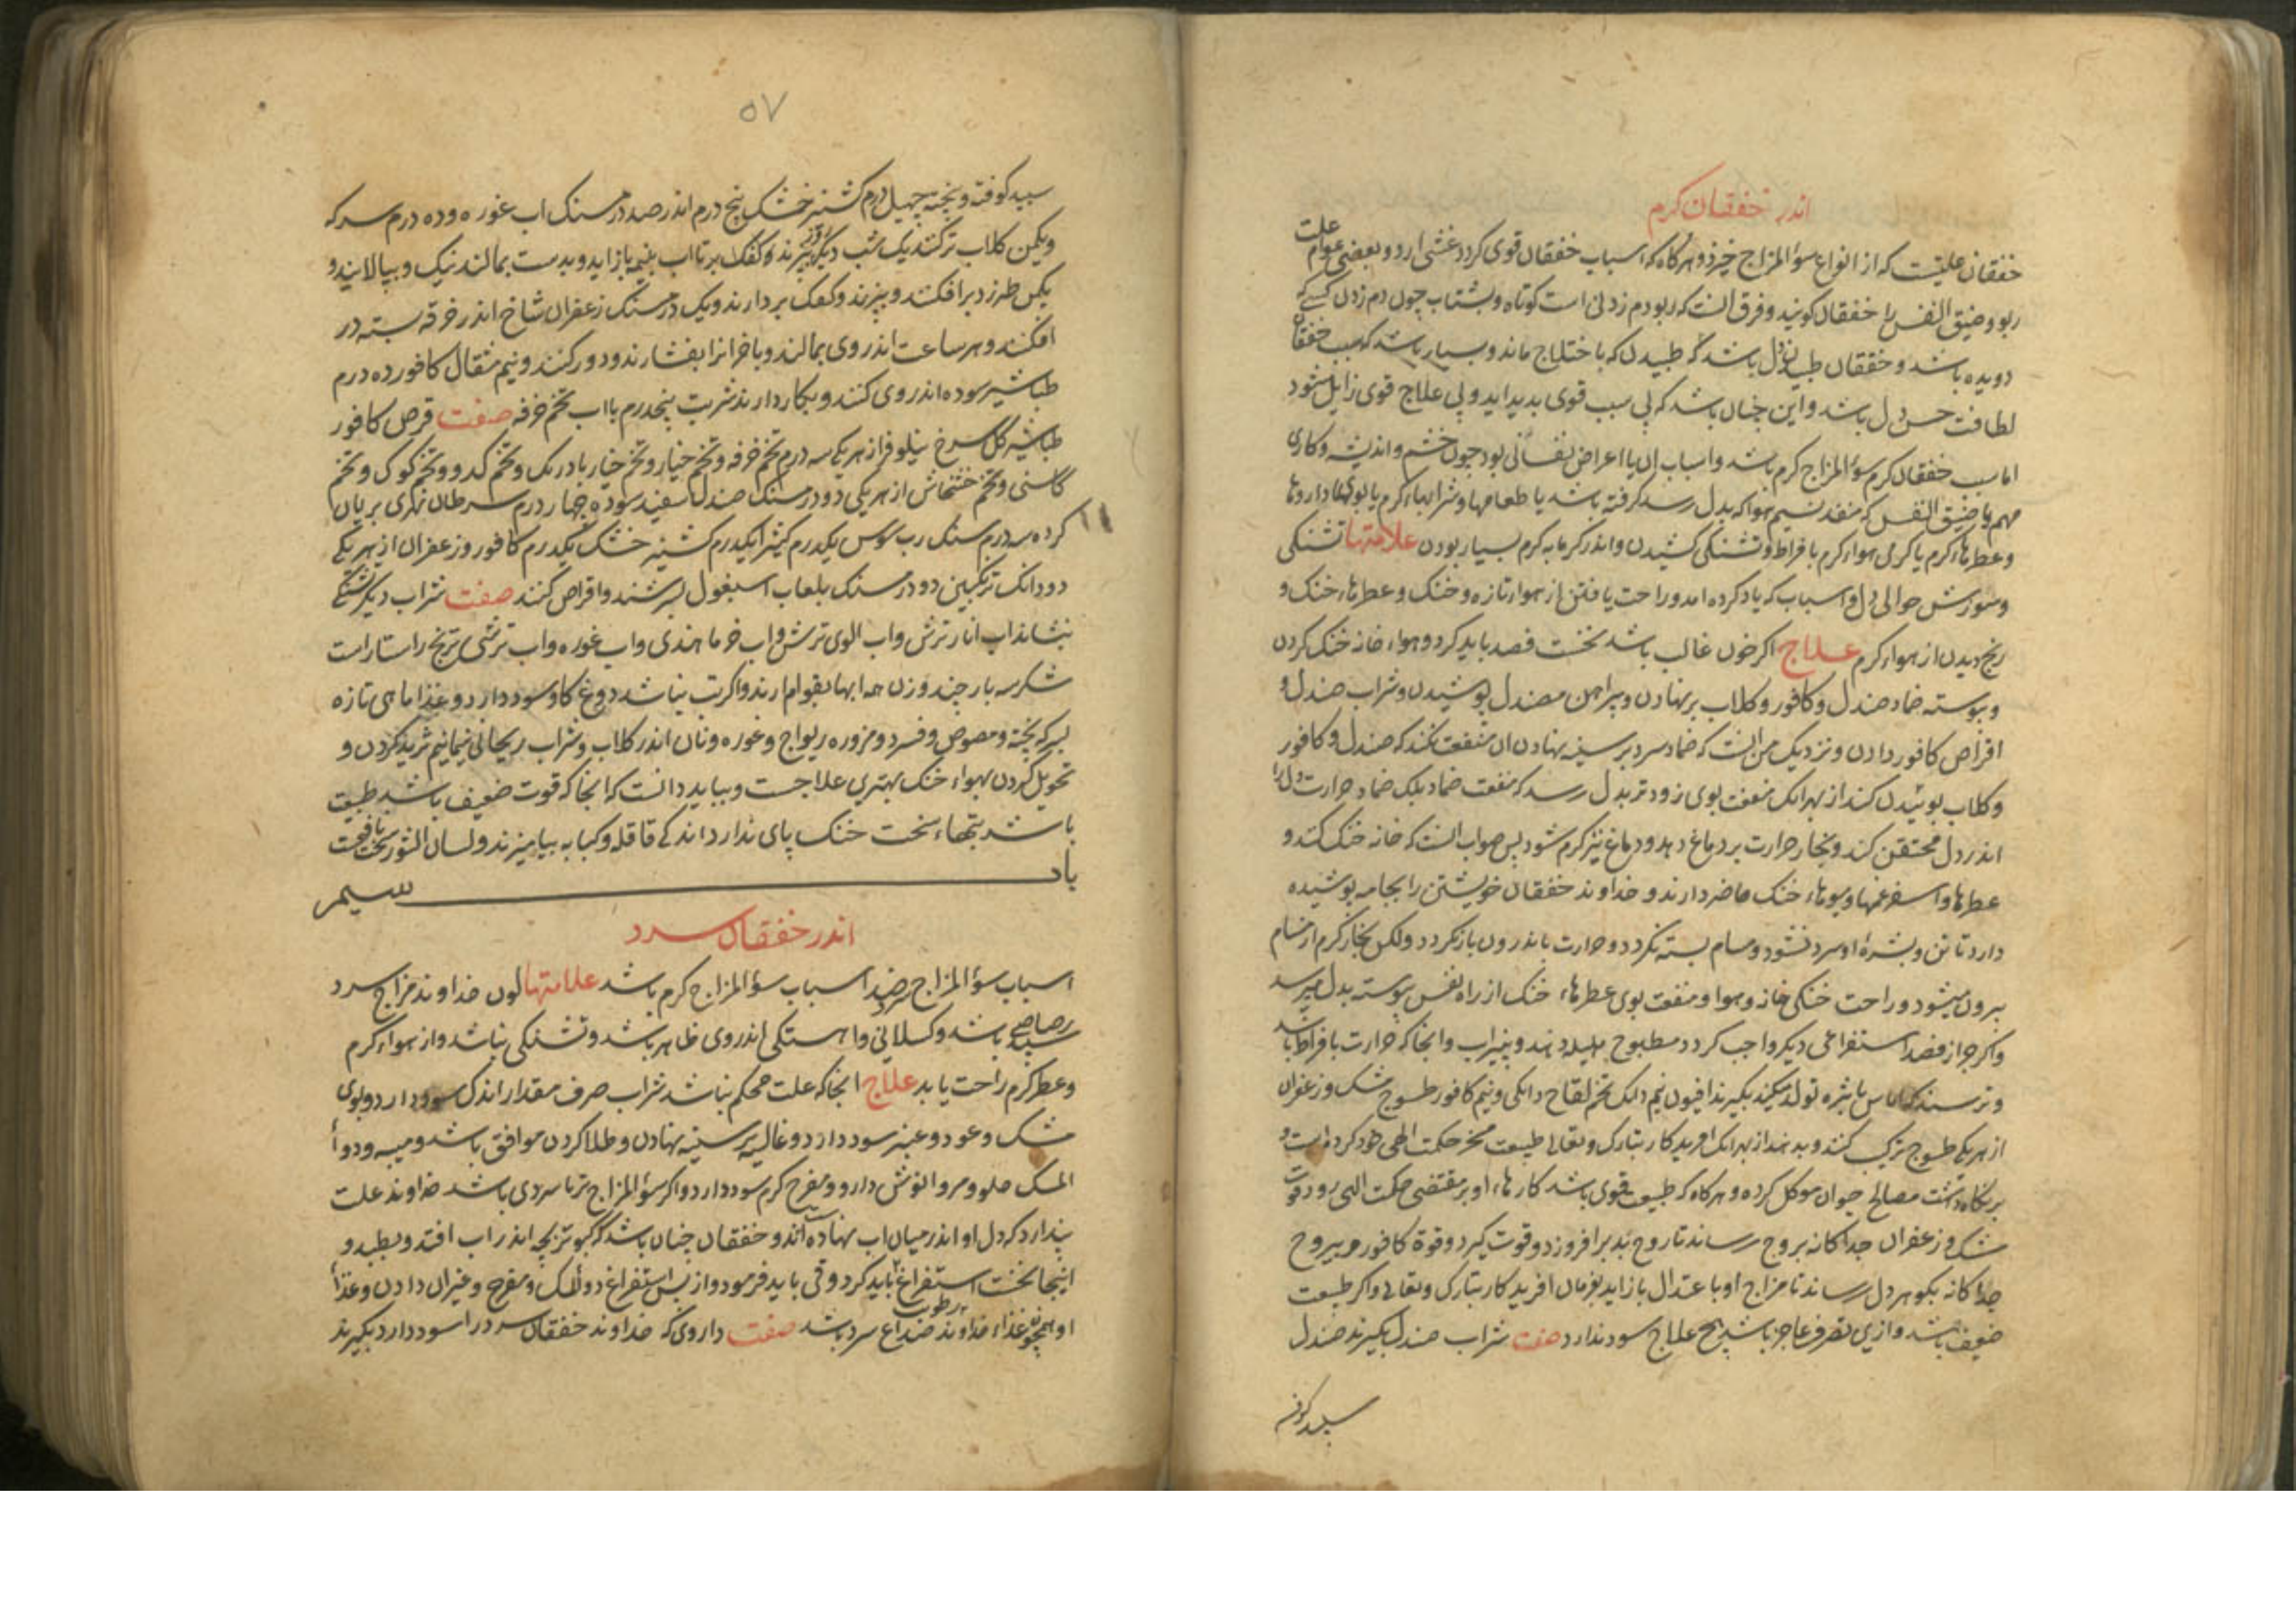 اندر خفقان کرم
خفقان علتیست که از انواع سوٴالمزاج خیزد و هرکاه که اسباب خفقان قوی کردد غشی ارد و بعضی عوام علت
ربو و ضیق النفس را خفقان کویند و فرق انست که ربو دم زدنی است کوتاه و بشتاب چون دم زدن کسی که
دویده باشد و خفقان طپیدن دل باشد که طپیدن که باختلاج ماند و بسیار باشد که سبب خفقان
لطافت حس دل باشد و این چنان باشد که بی سبب قوی بدید اید و بی علاج قوی زایل شود
اما سبب خفقان کرم سوٴالمزاج کرم باشد و اسباب ان یا اعراض نفسانی بود جون خشم و اندیشه و کاری
مهم یا ضیق النفس که منفذ نسیم هوا که بدل رسد کرفته باشد یا طعامها و شرابهاء کرم یا بویها داروها
و عطرهاء کرم یا کرمی هواء کرم بافراط و تشنکی کشیدن و اندر کرمابه کرم بسیار بودن علامتها تشنکی
و سوزش حوالی دل و اسباب که یاد کرده امد و راحت یافتن از هواء تازه و خنک و عطرهاء خنک و
رنج دیدن از هواء کرم علاج اکر خون غالب باشد نخست فصد باید کرد و هواء خانه خنک کردن
و پیوسته ضماد صندل و کافور و کلاب برنهادن و پیراهن مصندل پوشیدن و شراب صندل و
اقراص کافور دادن و نزدیک من انست که ضماد سرد بر سینه نهادن ان منفعت نکند که صندل و کافور
و کلاب بوئیدن کند از بهر انک منفعت بوی زودتر بدل رسد که منفعت ضماد بلک ضماد حرارت دل را
اندر دل محتقن کند و بخار حرارت بر دماغ دهد و دماغ نیز کرم شود پس صواب انست که خانه خنک کنند و
عطرها و اسفرغمها و بویهاء خنک حاضر دارند و خداوند خفقان خویشتن را بجامه پوشیده
دارد تا تن و بشرهٔ او سرد نشود و مسام بسته نکردد و حرارت باندرون بازنکردد ولکن بخار کرم از مسام
بیرون میشود و راحت خنکی خانه و هوا و منفعت بوی عطرهاء خنک از راه نفس پیوسته بدل میرسد
و اکر جز از فصد استفراغی دیکر واجب کردد مطبوخ هلیله دهند و پنیراب و انجا که حرارت بافراط باشد
و ترسند که اماس یا بثره تولد میکند بکیرند افیون نیم دانک تخم لفاح دانکی و نیم کافور طسوج مشک و زعفران
از هر یکی طسوج ترکیب کنند و بدهند از بهر انک افریدکار تبارک و تعالی طبیعت مسخر حکمت الهی خود کرده است و
بر نکاه داشت مصالح حیوان موکل کرده و هرکاه که طبیعت قوی باشد کارهاء او بر مقتضی حکمت الهی رود قوت
مشک و زعفران جداکانه بروح رساند تا روح بدو برافروزد و قوت کیرد و قوة کافور و بیروح
جداکانه بکوهر دل رساند تا مزاج او باعتدال بازاید بفرمان افریدکار تبارک و تعالی و اکر طبیعت
ضعیف باشد و ازین تصرف عاجز باشد هیچ علاج سود ندارد صفت شراب صندل بکیرند صندل
سپید کوفته
٥٧
سپید کوفته و پخته چهل درم کشنیز خشک پنج درم اندر صد درمسنک اب غوره و ده درم سرکه
و یکمن کلاب تر کنند یک شب دیکر روز بپزند و کفک بر تا اب بنیمه بازاید و بدست بمالند نیک و بپالایند و
یکمن طبرزد برافکنند و بپزند و کفک بردارند و یک درمسنک زعفران شاخ اندر خرقه بسته در
افکنند و هر ساعت اندر وی بمالند و باخر انرا بفشارند و دور کنند و نیم مثقال کافور ده درم
طباشیر سوده اندر وی کنند و بکار دارند شربت پنجدرم با اب تخم خرفه صفت قرص کافور
طباشیر کل سرخ نیلوفر از هر یکی سه درم تخم خرفه و تخم خیار و تخم خیار بادرنک و تخم کدو و تخم کوک و تخم
کاسنی و تخم خشخاش از هر یکی دو درمسنک صندل سفید سوده چهار درم سرطان نهری بریان
کرده سه درم سنک رب سوس یکدرم کثیرا یکدرم کشنیز خشک یکدرم کافور و زعفران از هر یکی
دو دانک ترنکبین دو درمسنک بلعاب اسبغول بسرشند و اقراص کنند صفت شراب دیکر تشنکی
بنشاند اب انار ترش و اب الوی ترش و اب خرما هندی و اب غوره و اب ترشی ترنج راستاراست
شکر سه بار چند وزن همه ابها بقوام ارند و اکر تب نباشد دوغ کاو سود دارد و غذا ماهی تازه
بسرکه پخته و مصوص و فسرد و مزوره ریواج و غوره و نان اندر کلاب و شراب ریحانی نیمانیم ثرید کردن و
تحویل کردن بهواء خنک بهترین علاجست و بباید دانست که انجا که قوت ضعیف باشد طبیعت
باشد بتبهاء سخت خنک پای ندارد اندکی قاقله و کبابه بیامیزند و لسان الثور سخت نافعست
باد سیم
اندر خفقان سرد
اسباب سوٴالمزاج سرد ضد اسباب سوٴالمزاج کرم باشد علامتها لون خداوند مزاج سرد
رصاصی سپید باشد و کسلانی و اهستکی اندر وی ظاهر باشد و تشنکی نباشد و از هواء کرم
و عطر کرم راحت یابد علاج انجا که علت محکم نباشد شراب صرف مقدار اندک سود دارد و بوی
مشک و عود و عنبر سود دارد و غالیه بر سینه نهادن و طلا کردن موافق باشد و میبه و دواٴ
المسک حلو و مر و انوش دارو و مفرح کرم سود دارد و اکر سوٴالمزاج تر با سردی باشد خداوند علت
پندارد که دل او اندر میان اب نهاده اند و خفقان چنان باشد که کبوتربچه اندر اب افتد و بطپد و
اینجا نخست استفراغ باید کرد و قی باید فرمود و از پس استفراغ دواٴالمسک و مفرح و غیر ان دادن و غذاٴ
او همچون غذاء خداوند صداع سرد باشد صفت داروی که خداوند خفقان سرد را سود دارد بکیرند